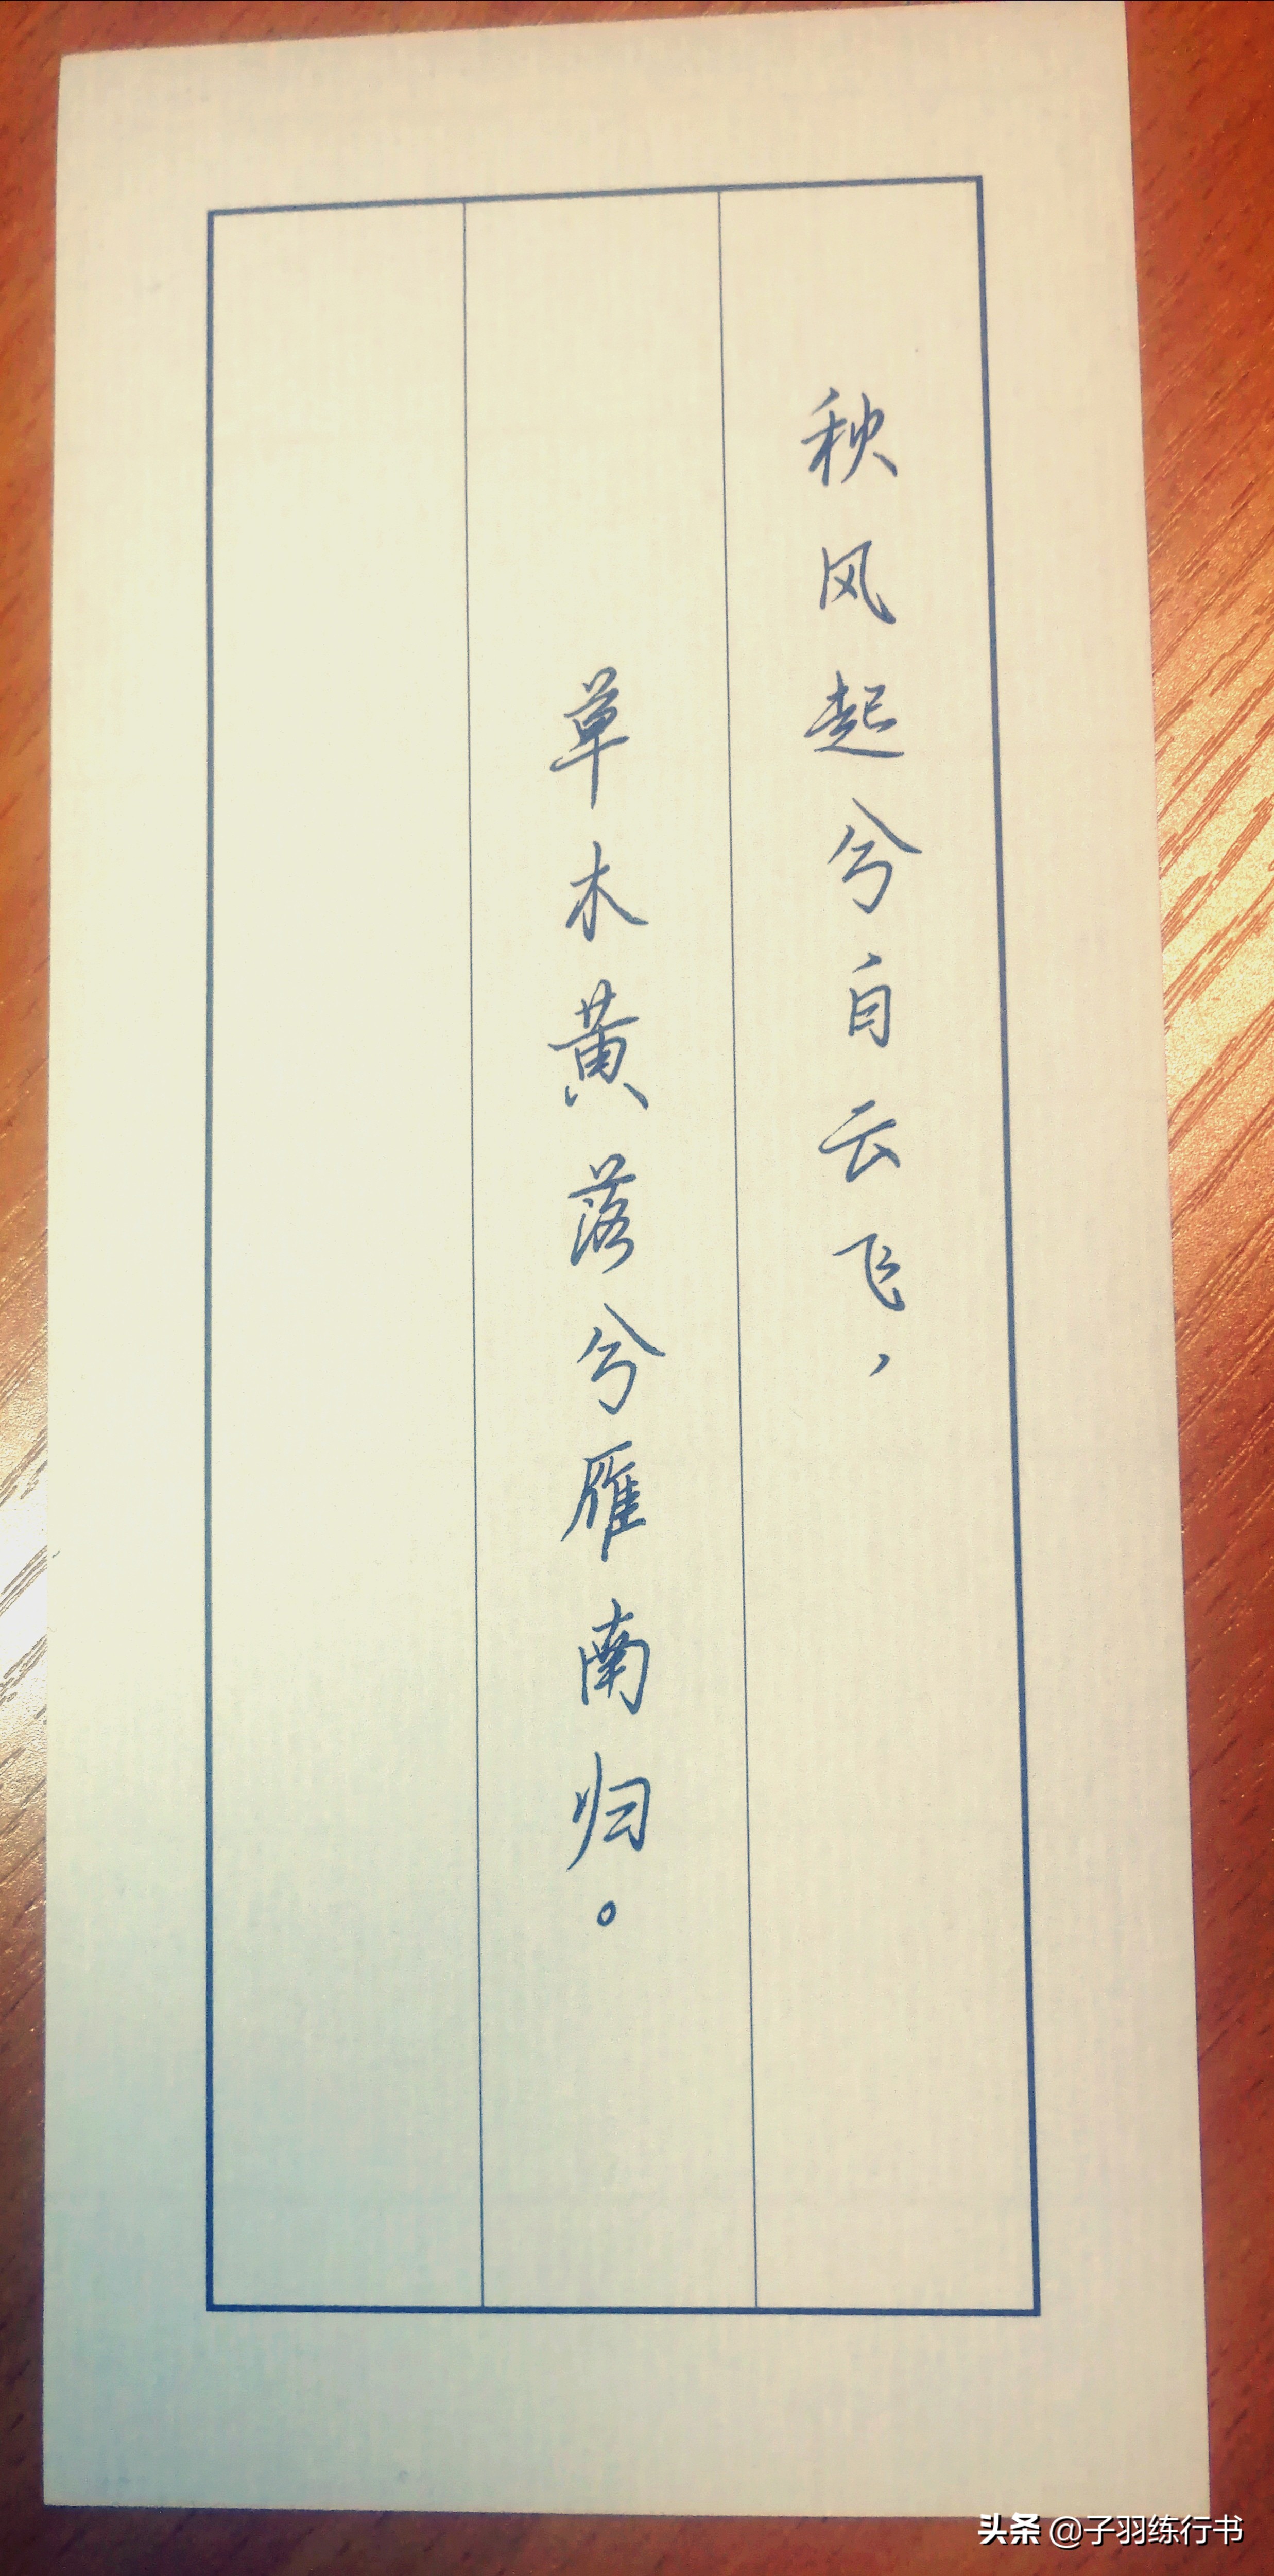 秋风起兮自云飞，
草木黄落兮雁南归。
头条 @子羽练行书